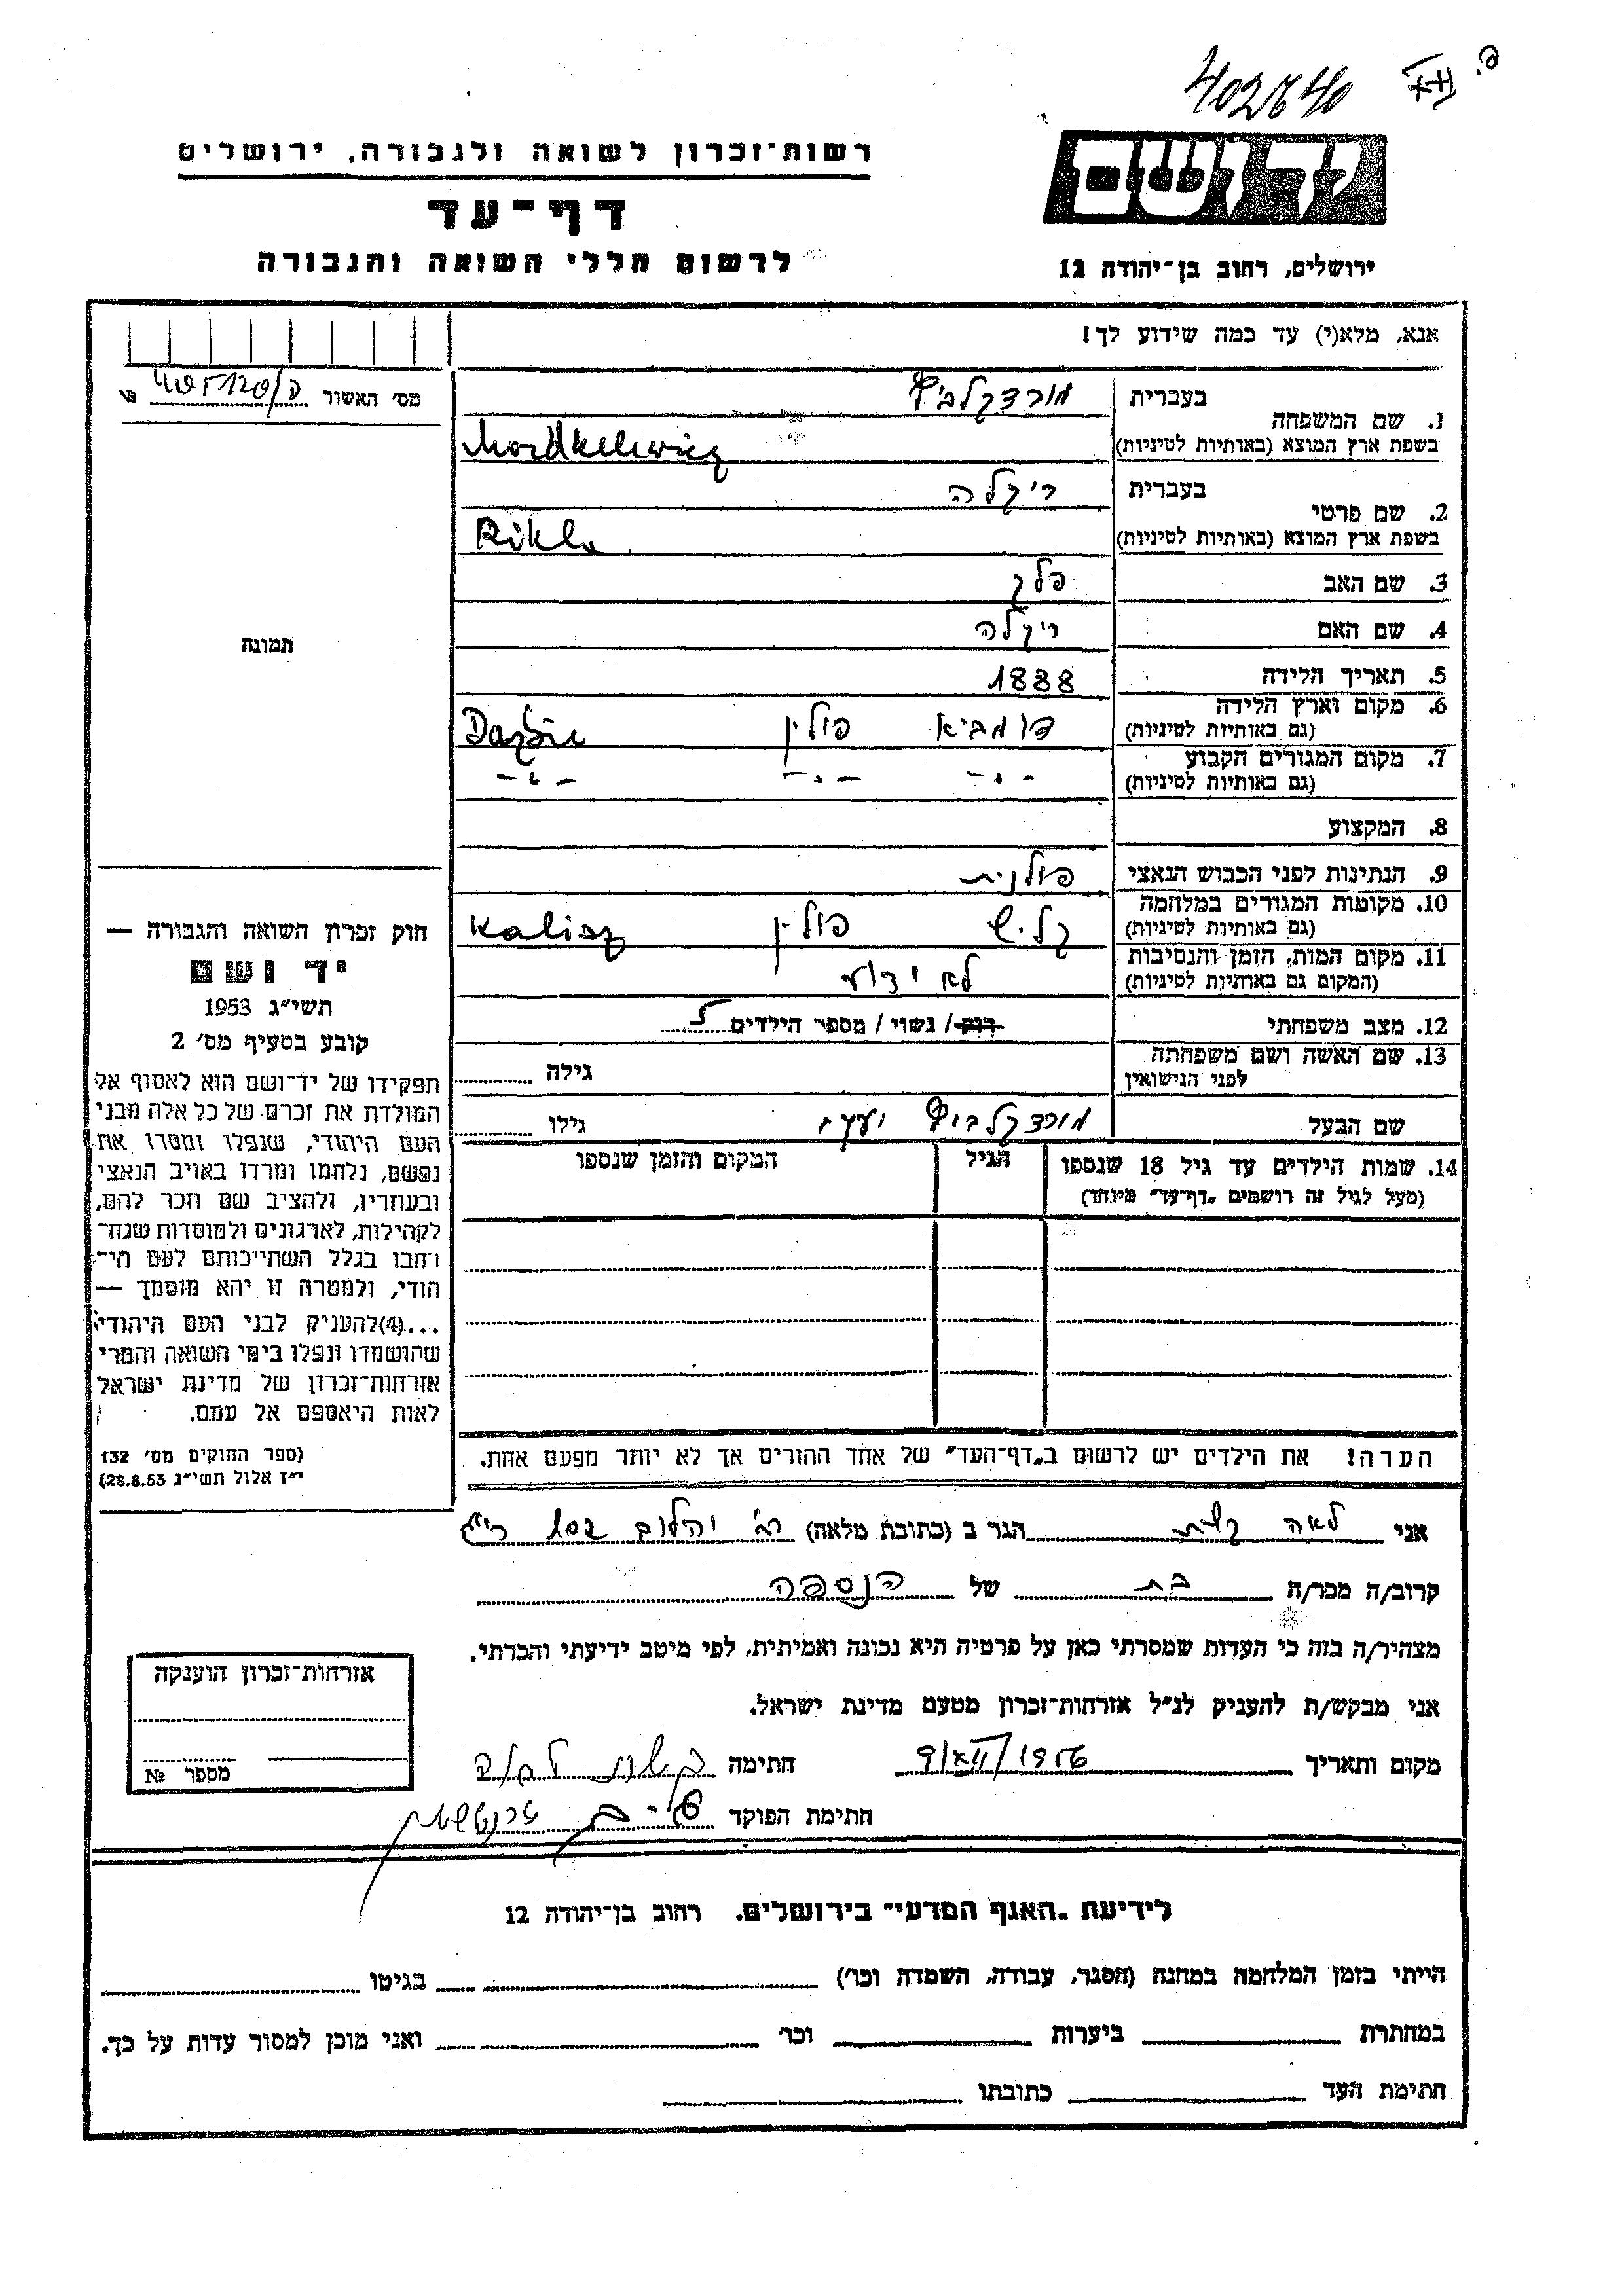 402640
רשות־זכרון לשואה ולגבורה, ירושלים
דף־עד
לרשום חללי השואה והגבורה
יד ושם
ירושלים, רחוב בן־יהודה 12
אנא, מלא(י) עד כמה שידוע לך!
מס׳ האשור №
1. שם המשפחה
בעברית
בשפת ארץ המוצא (באותיות לטיניות)
2. שם פרטי
בעברית ריקלה
בשפת ארץ המוצא (באותיות לטיניות)
3. שם האב פלך
4. שם האם ריקלה
5. תאריך הלידה 1888
6. מקום וארץ הלידה פולין
(גם באותיות לטיניות)
7. מקום המגורים הקבוע -"- -"- -"-
(גם באותיות לטיניות)
8. המקצוע
9. הנתינות לפני הכבוש הנאצי פולנית
10. מקומות המגורים במלחמה קליש פולין Kalisz
(גם באותיות לטיניות)
11. מקום המות, הזמן והנסיבות לא ידוע
(המקום גם באותיות לטיניות)
12. מצב משפחתי רווק/ נשוי/ מספר הילדים 5
13. שם האשה ושם משפחתה
לפני הנישואין
גילה
שם הבעל יעקב גילו
14. שמות הילדים עד גיל 18 שנספו
(מעל לגיל זה רושמים „דף־עד" מיוחד)
הגיל
המקום והזמן שנספו
הערה! את הילדים יש לרשום ב„דף־העד" של אחד ההורים אך לא יותר מפעם אחת.
תמונה
חוק זכרון השואה והגבורה —
יד ושם
תשי״ג 1953
קובע בסעיף מס׳ 2
תפקידו של יד־ושם הוא לאסוף אל
המולדת את זכרם של כל אלה מבני
העם היהודי, שנפלו ומסרו את
נפשם, נלחמו ומרדו באויב הנאצי
ובעוזריו, ולהציב שם וזכר להם,
לקהילות, לארגונים ולמוסדות שנח־
רחבו בגלל השתייכותם לעם הי־
הודי, ולמטרה זו יהא מוסמך —
...(4)להעניק לבני העם היהודי
שהושמדו ונפלו בימי השואה והמרי
אזרחות־זכרון של מדינת ישראל
לאות היאספם אל עמם.
(ספר החוקים מס׳ 132
י״ז אלול תשי״ג 28.8.53)
אני לאה הגר ב (כתובת מלאה)
קרוב/ה מכר/ה בת של הנספה
מצהיר/ה בזה כי העדות שמסרתי כאן על פרטיה היא נכונה ואמיתית, לפי מיטב ידיעתי והכרתי.
אני מבקש/ת להעניק לנ״ל אזרחות־זכרון מטעם מדינת ישראל.
מקום ותאריך חתימה
חתימת הפוקד
אזרחות־זכרון הוענקה
מספר №
לידיעת „האגף המדעי" בירושלים. רחוב בן־יהודה 12
הייתי בזמן המלחמה במחנה (הסגר, עבודה, השמדה וכו׳) בגיטו
במחתרת ביערות וכו׳ ואני מוכן למסור עדות על כך.
חתימת העד כתובתו